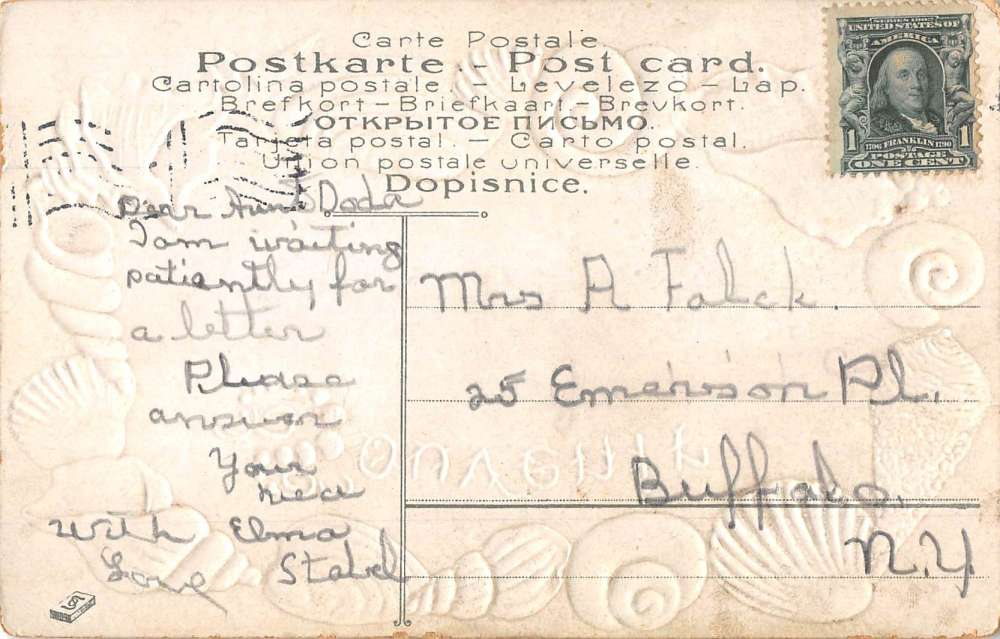 Carte Postale.
Postkarte. – Post card.
Cartolina postale. – Levelezo – Lap.
Brefkort – Briefkaart. – Brevkort.
ОТКРЫТОЕ ПИСЬМО.
Tarjeta postal. – Carto postal.
Union postale universelle.
Dopisnice.
SERIES 1902
UNITED STATES OF
AMERICA
1 1706 FRANKLIN 1790 1
POSTAGE
ONE CENT
Dear Aunt Doda
I am waiting
patiently for
a letter
Please
answer
Your
niece
with Elma
Love Stabel
Mrs A Falck.
25 Emerson Pl.
Buffalo.
N.Y